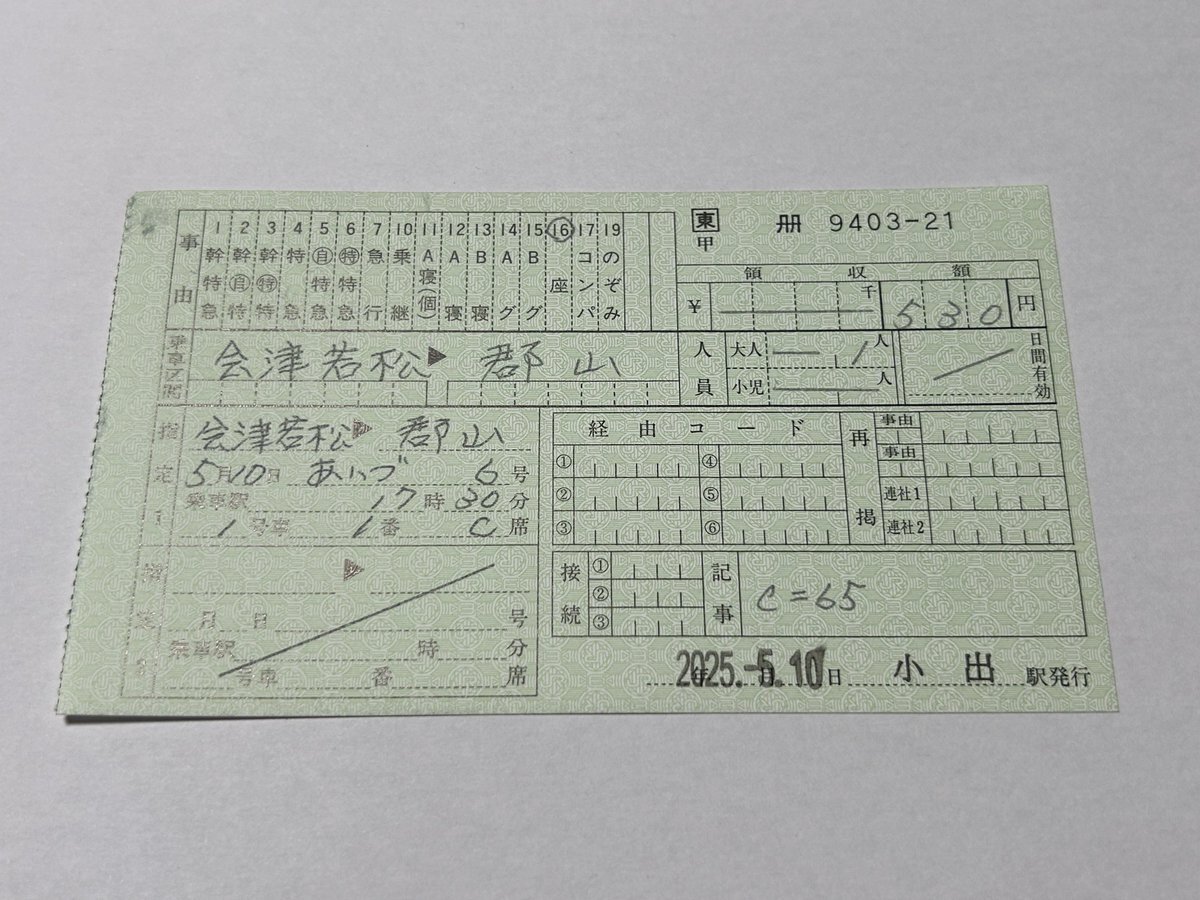 東 甲 冊 9403-21
事由
1 幹特急
2 幹自特
3 幹特特
4 特急
5 自特急
6 特特急
7 急行
10 乗継
11 A寝(個)
12 A寝
13 B寝
14 Aグ
15 Bグ
16 座
17 コンパ
19 のぞみ
領収額
¥ 千 530円
乗車区間 会津若松 ▶ 郡山
人員 大人 1人
小児 人
日間有効
指定 会津若松 ▶ 郡山
5月10日 あいづ 6号
乗車駅 17時30分
1号車 1番 C席
経由コード
① ④
② ⑤
③ ⑥
再掲
事由
事由
連社1
連社2
▶
月 日 号
乗車駅 時 分
号車 番 席
接続 ① ② ③
記事 C=65
2025.-5.10 年 月 日 小出 駅発行